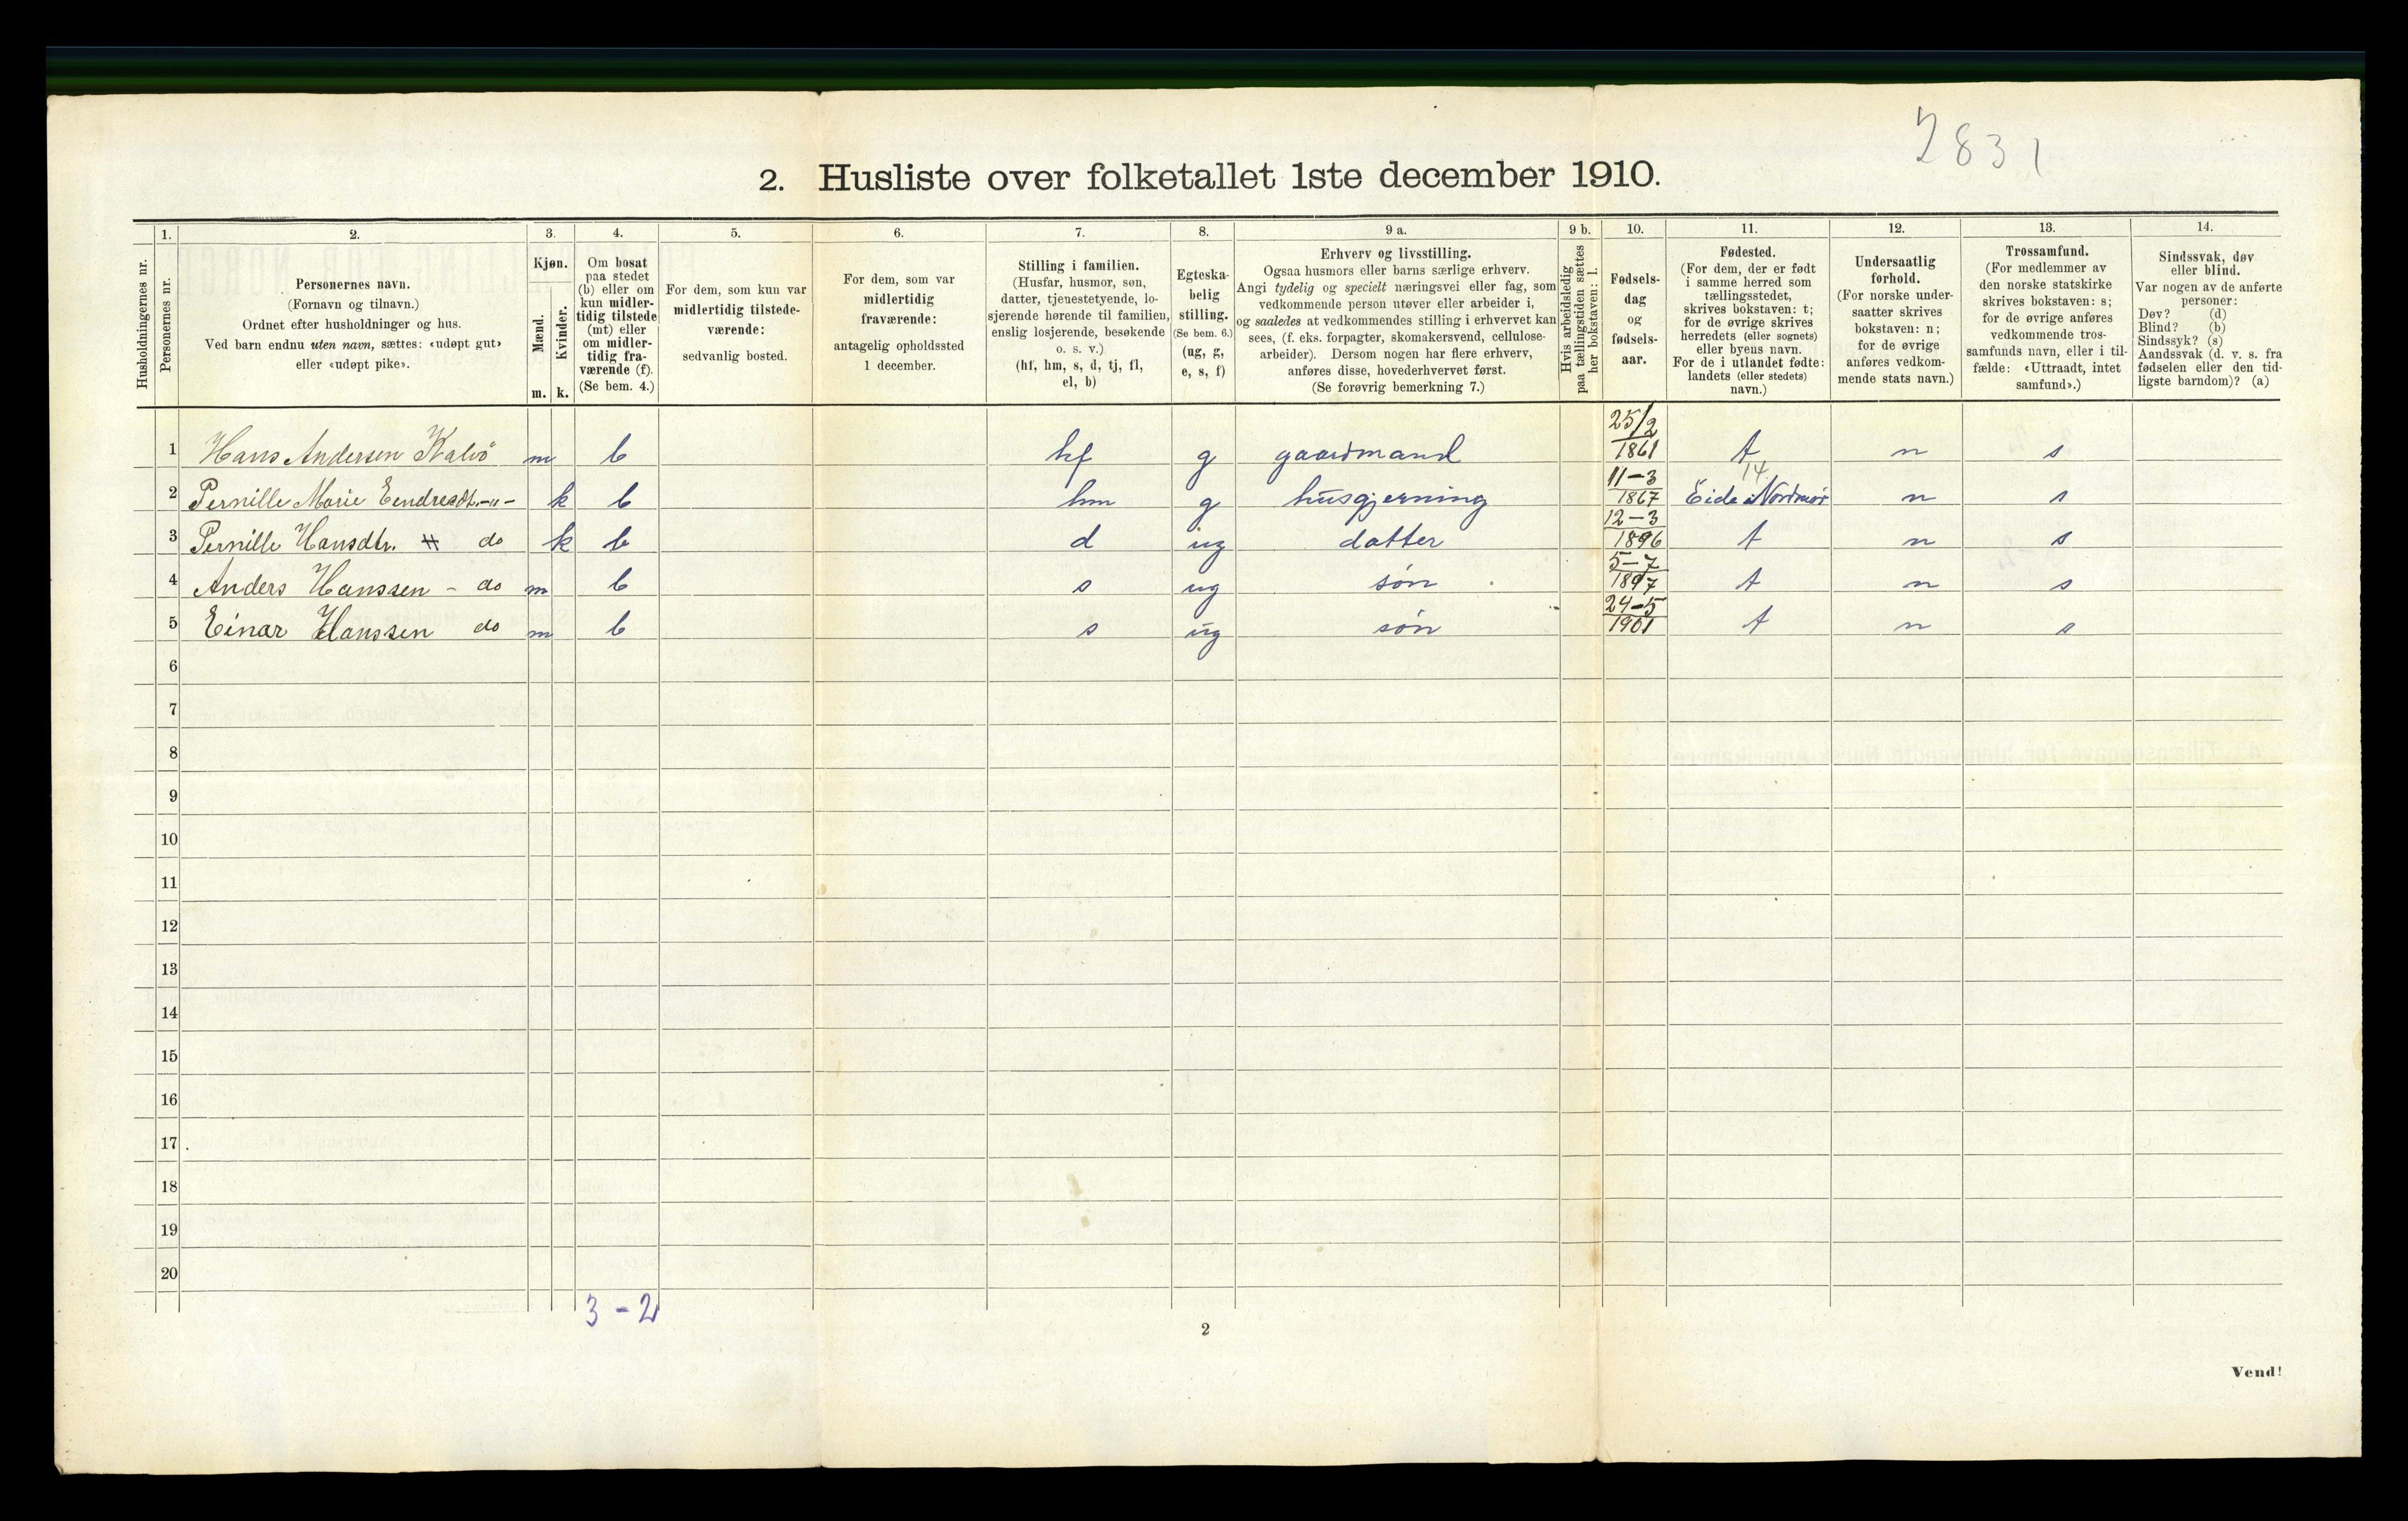 2831
2. Husliste over folketallet 1ste december 1910.
Husholdningernes nr.
1.
Personernes nr.
2.
Personernes navn.
(Fornavn og tilnavn.)
Ordnet efter husholdninger og hus.
Ved barn endnu uten navn, sættes: «udøpt gut»
eller «udøpt pike».
3.
Kjøn.
Mænd.
Kvinder.
m. k.
4.
Om bosat
paa stedet
(b) eller om
kun midler-
tidig tilstede
(mt) eller
om midler-
tidig fra-
værende (f).
(Se bem. 4.)
5.
For dem, som kun var
midlertidig tilstede-
værende:
sedvanlig bosted.
6.
For dem, som var
midlertidig
fraværende:
antagelig opholdssted
1 december.
7.
Stilling i familien.
(Husfar, husmor, søn,
datter, tjenestetyende, lo-
sjerende hørende til familien,
enslig losjerende, besøkende
o. s. v.)
(hf, hm, s, d, tj, fl,
el, b)
8.
Egteska-
belig
stilling.
(Se bem. 6.)
(ug, g,
e, s, f)
9 a.
Erhverv og livsstilling.
Ogsaa husmors eller barns særlige erhverv.
Angi tydelig og specielt næringsvei eller fag, som
vedkommende person utøver eller arbeider i,
og saaledes at vedkommendes stilling i erhvervet kan
sees, (f. eks. forpagter, skomakersvend, cellulose-
arbeider). Dersom nogen har flere erhverv,
anføres disse, hovederhvervet først.
(Se forøvrig bemerkning 7.)
9 b.
Hvis arbeidsledig
paa tællingstiden sættes
her bokstaven: l.
10.
Fødsels-
dag
og
fødsels-
aar.
11.
Fødested.
(For dem, der er født
i samme herred som
tællingsstedet,
skrives bokstaven: t;
for de øvrige skrives
herredets (eller sognets)
eller byens navn.
For de i utlandet fødte:
landets (eller stedets)
navn.)
12.
Undersaatlig
forhold.
(For norske under-
saatter skrives
bokstaven: n;
for de øvrige
anføres vedkom-
mende stats navn.)
13.
Trossamfund.
(For medlemmer av
den norske statskirke
skrives bokstaven: s;
for de øvrige anføres
vedkommende tros-
samfunds navn, eller i til-
fælde: «Uttraadt, intet
samfund».)
14.
Sindssvak, døv
eller blind.
Var nogen av de anførte
personer:
Døv? (d)
Blind? (b)
Sindssyk? (s)
Aandssvak (d. v. s. fra
fødselen eller den tid-
ligste barndom)? (a)
1 Hans Andersen Kalvö m b hf g gaardmand 25/2 1861 t n s
14
2 Pernille Marie Eendresdt. -"- k b hm g husgjerning 11-3 1867 Eide Nordmør n s
3 Pernille Hansdtr. do k b d ug datter 12-3 1896 t n s
4 Anders Hanssen - do m b s ug søn 5-7 1897 t n s
5 Einar Hanssen do m b s ug søn 24-5 1901 t n s
6
7
8
9
10
11
12
13
14
15
16
17
18
19
20
3-2
2
Vend!